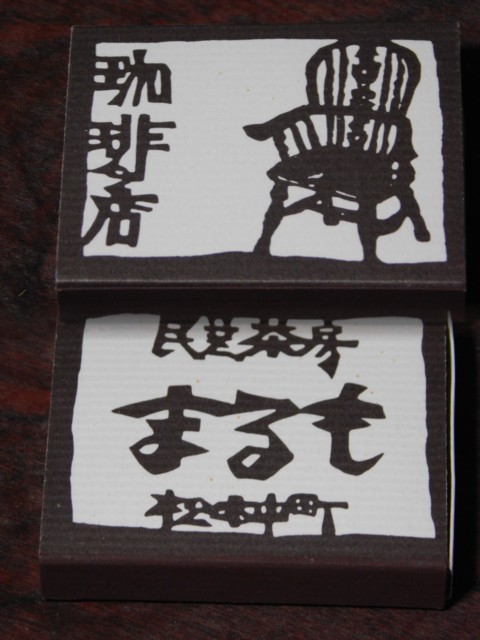 珈琲店
民芸茶房
まるも
松本中町